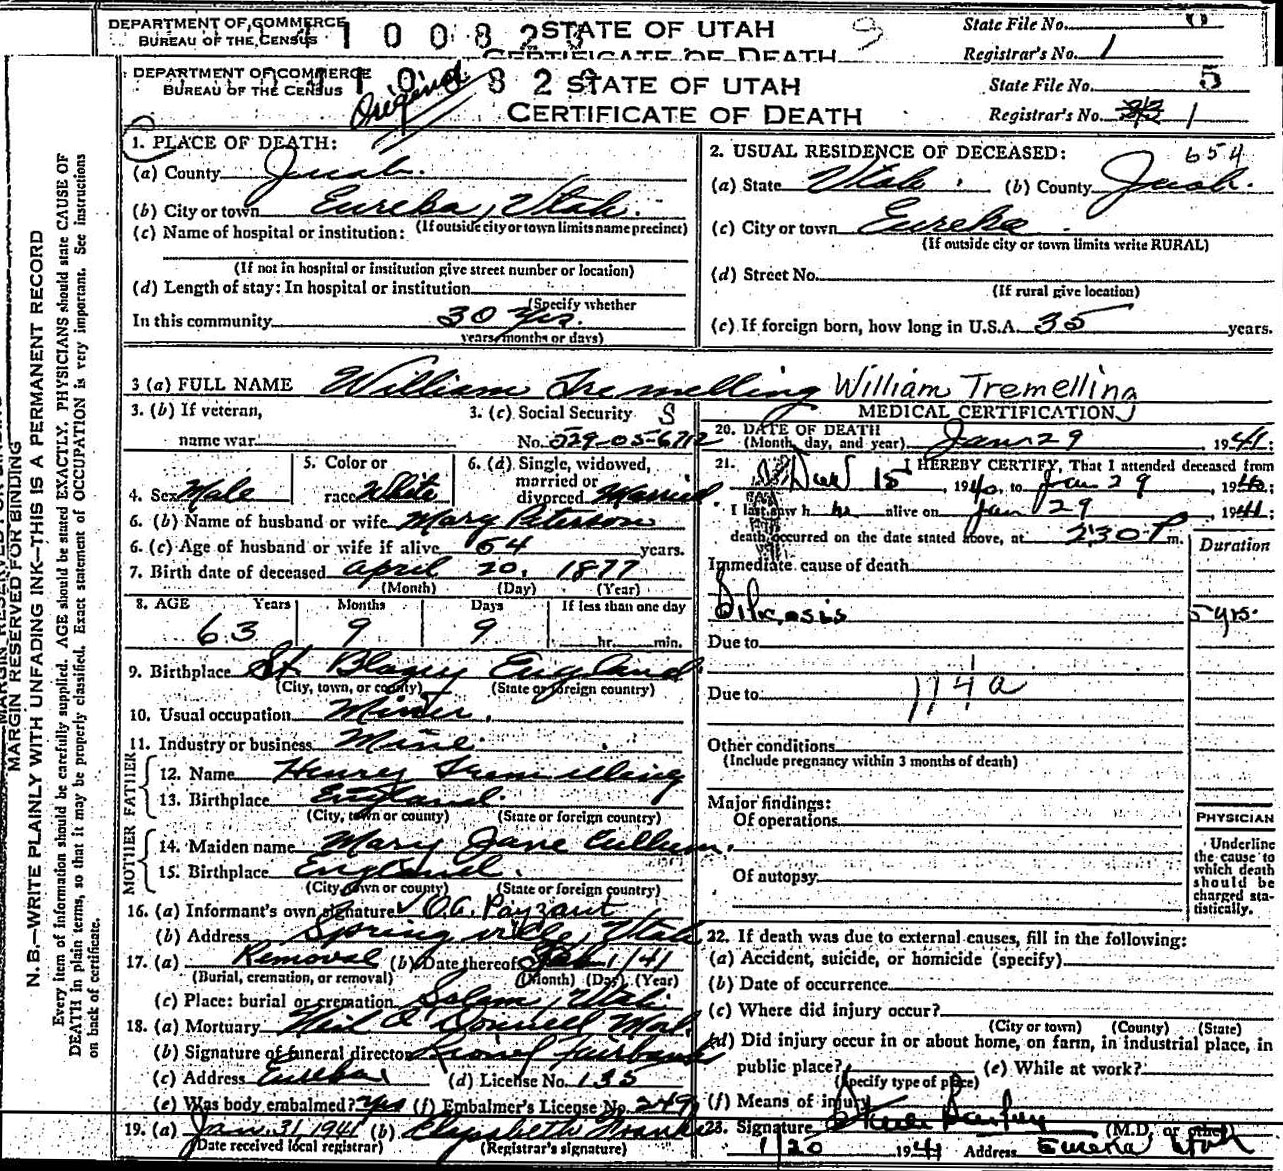 DEPARTMENT OF COMMERCE
BUREAU OF THE CENSUS
STATE OF UTAH
CERTIFICATE OF DEATH
State File No. 6
Registrar's No. 1
DEPARTMENT OF COMMERCE
BUREAU OF THE CENSUS
Original
STATE OF UTAH
CERTIFICATE OF DEATH
State File No. 5
Registrar's No. 1
MARGIN RESERVED FOR BINDING
N. B.—WRITE PLAINLY WITH UNFADING INK—THIS IS A PERMANENT RECORD
Every item of information should be carefully supplied. AGE should be stated EXACTLY. PHYSICIANS should state CAUSE OF
DEATH in plain terms, so that it may be properly classified. Exact statement of OCCUPATION is very important. See instructions
on back of certificate.
1. PLACE OF DEATH:
(a) County Juab.
(b) City or town Eureka, Utah.
(If outside city or town limits name precinct)
(c) Name of hospital or institution:
(If not in hospital or institution give street number or location)
(d) Length of stay: In hospital or institution
(Specify whether
In this community 30 yrs.
years, months or days)
2. USUAL RESIDENCE OF DECEASED: 654
(a) State Utah. (b) County Juab.
(c) City or town Eureka.
(If outside city or town limits write RURAL)
(d) Street No.
(If rural give location)
(e) If foreign born, how long in U.S.A. 35 years.
3 (a) FULL NAME William Tremelling William Tremelling
3. (b) If veteran,
name war
3. (c) Social Security S
No. 529-05-6712
4. Sex Male
5. Color or
race White
6. (d) Single, widowed,
married or
divorced Married
6. (b) Name of husband or wife Mary Peterson
6. (c) Age of husband or wife if alive 54 years.
7. Birth date of deceased April 20, 1877
(Month) (Day) (Year)
8. AGE Years Months Days If less than one day
63 9 9 hr. min.
9. Birthplace St. Blazey England
(City, town, or county) (State or foreign country)
10. Usual occupation Miner.
11. Industry or business Mine.
FATHER
12. Name Henry Tremelling
13. Birthplace England
(City, town or county) (State or foreign country)
MOTHER
14. Maiden name Mary Jane
15. Birthplace England.
(City, town or county) (State or foreign country)
16. (a) Informant's own signature O.A. Payzant
(b) Address Springville, Utah
17. (a) Removal (b) Date thereof Feb 1 / 41
(Burial, cremation, or removal) (Month) (Day) (Year)
(c) Place: burial or cremation Salem, Utah.
18. (a) Mortuary Neil O'Donnell Mort.
(b) Signature of funeral director Lionel Fairbanks
(c) Address Eureka (d) License No. 135
(e) Was body embalmed? Yes (f) Embalmer's License No. 249
19. (a) Jan. 31, 1941 (b) Elizabeth
(Date received local registrar) (Registrar's signature)
MEDICAL CERTIFICATION
20. DATE OF DEATH
(Month, day, and year) Jan 29 1941;
21. I HEREBY CERTIFY, That I attended deceased from
Dec 15, 1940, to Jan 29, 1941;
I last saw h im alive on Jan 29 1941;
death occurred on the date stated above, at 2:30 P m.
Duration
Immediate cause of death
Silicosis 5 yrs.
Due to
Due to 114a
Other conditions
(Include pregnancy within 3 months of death)
Major findings:
Of operations
Of autopsy
PHYSICIAN
Underline
the cause to
which death
should be
charged sta-
tistically.
22. If death was due to external causes, fill in the following:
(a) Accident, suicide, or homicide (specify)
(b) Date of occurrence
(c) Where did injury occur?
(City or town) (County) (State)
(d) Did injury occur in or about home, on farm, in industrial place, in
public place? (e) While at work?
(Specify type of place)
(f) Means of injury
23. Signature Steele Bailey (M.D. or other)
1/20 1941 Address Eureka Utah